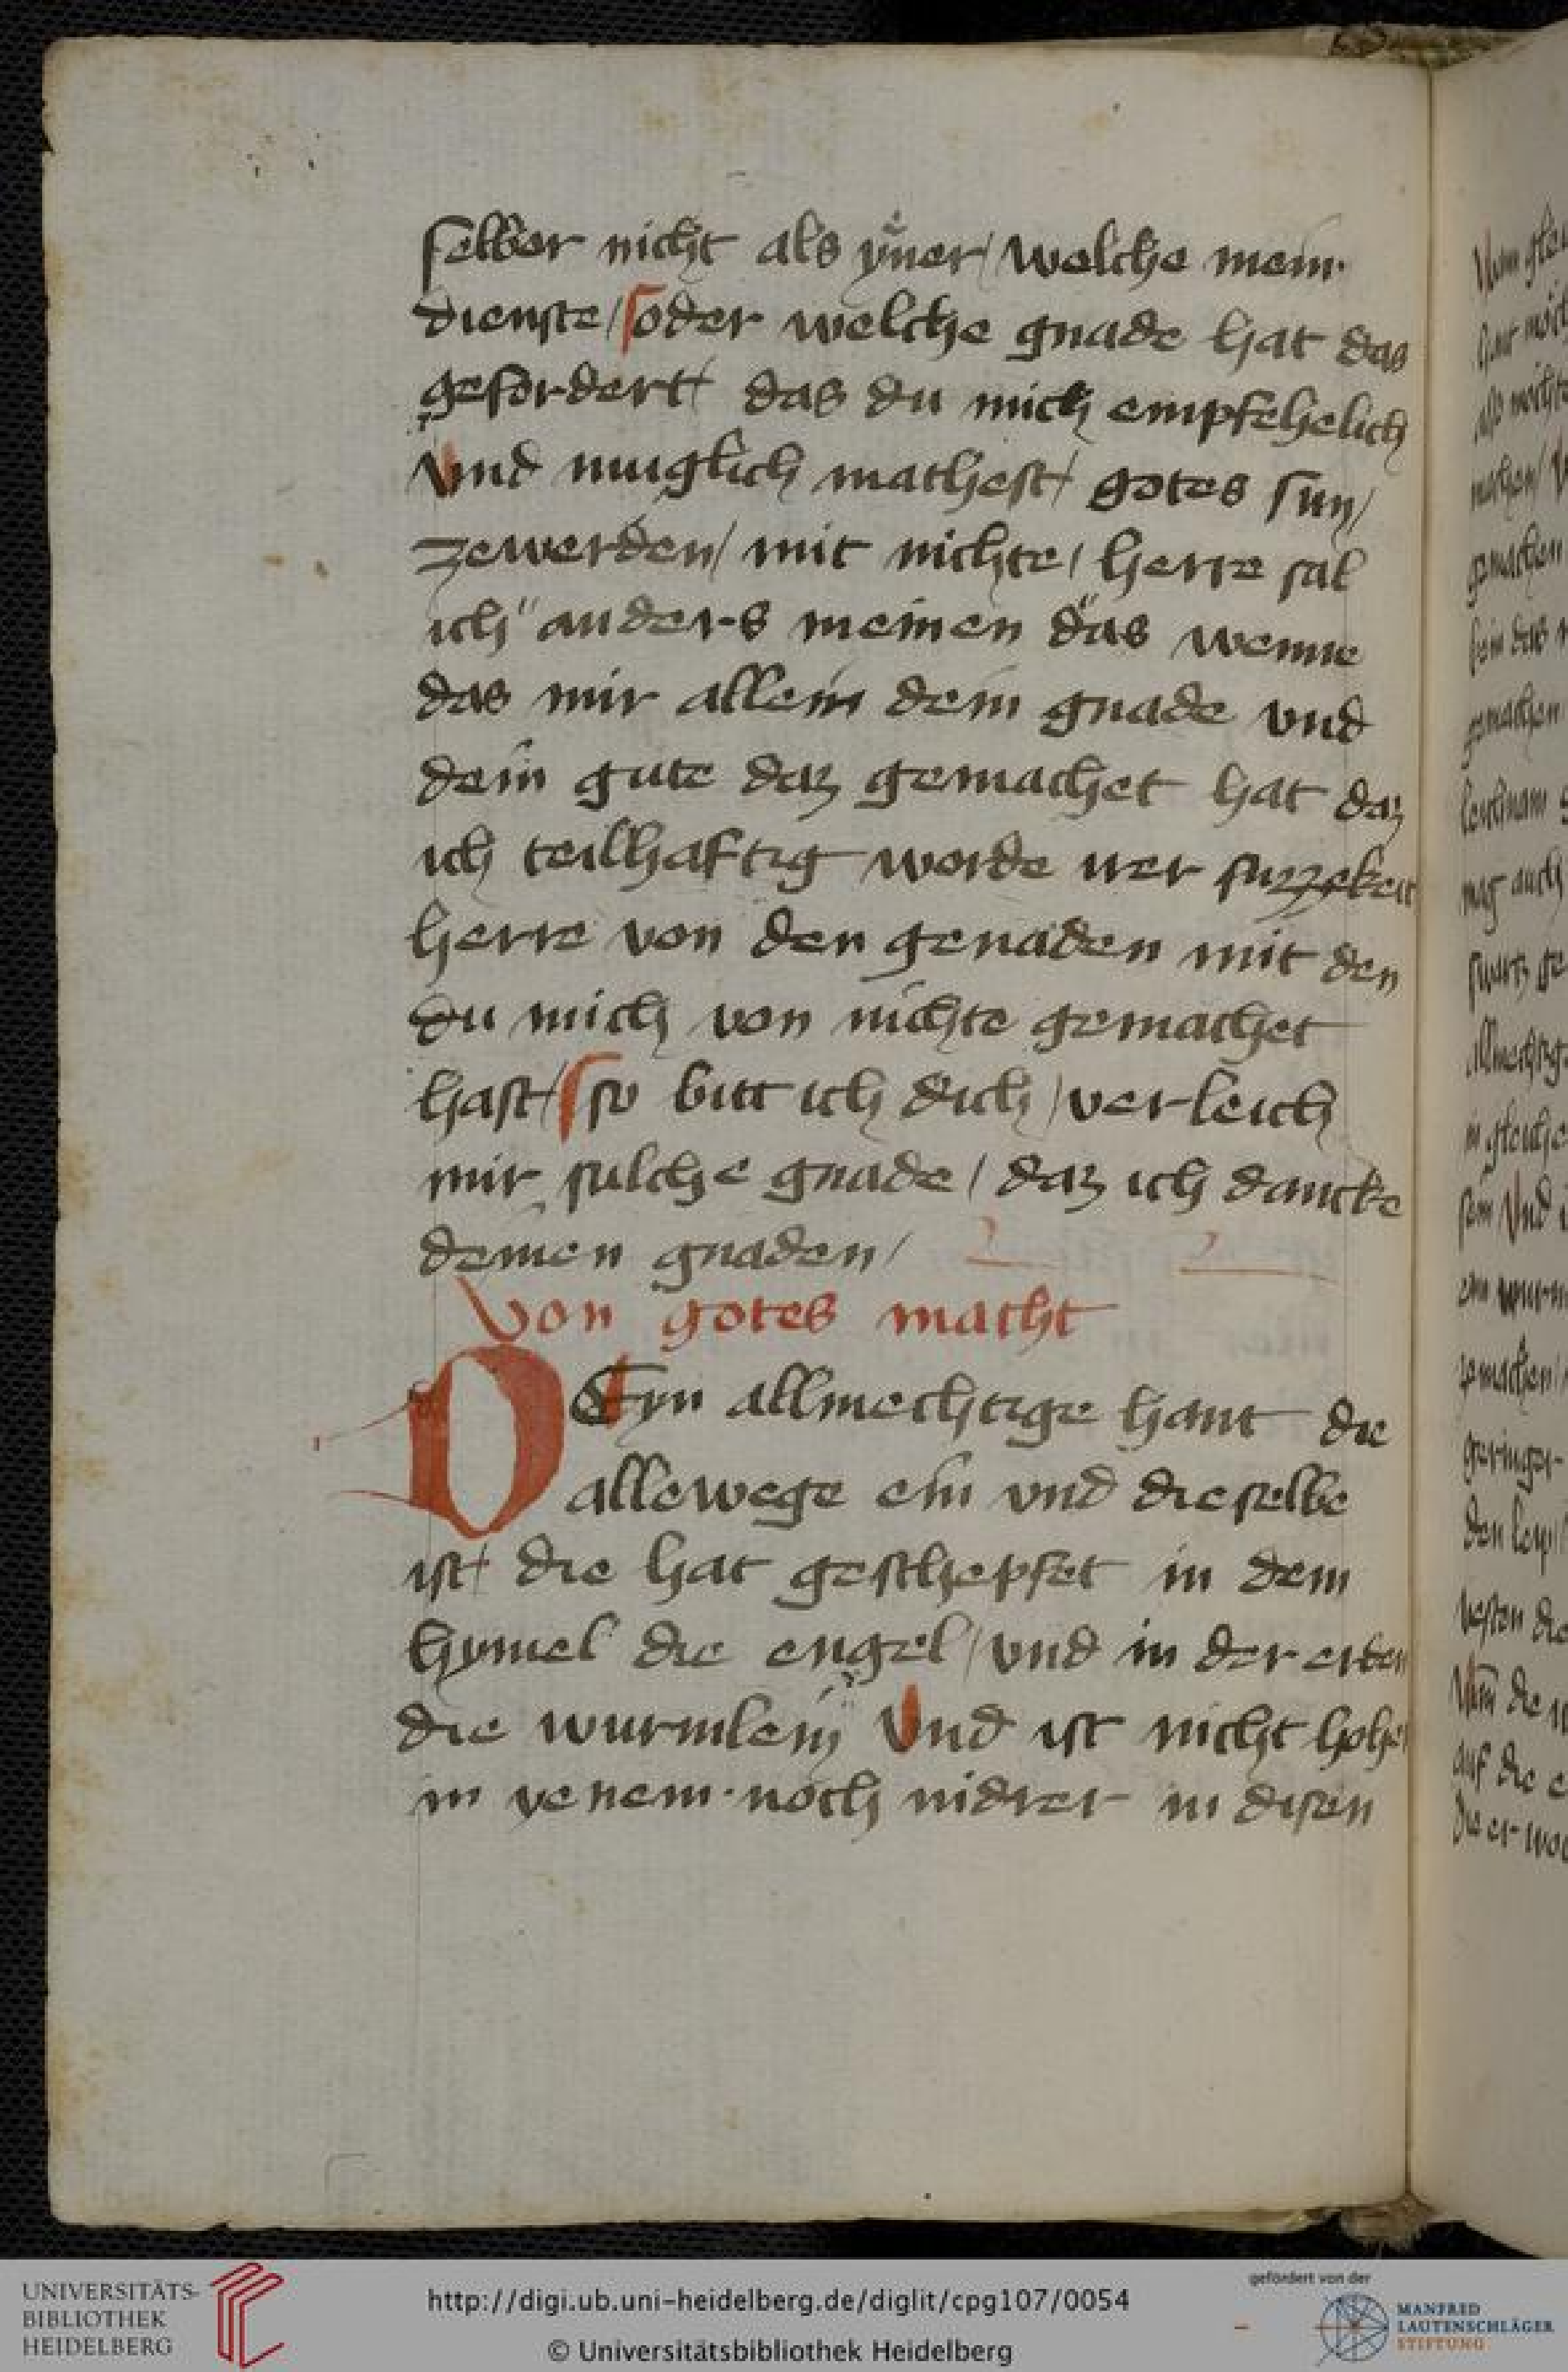 selber nicht als yener / welche mein
dienste / oder welche gnade hat das
gefordert / das du mich empfehelich
vnd muglich machest / gotes sun /
zewerden / mit nichte / herre sal
ich anders meinen das wenne
das mir allein dein gnade vnd
dein gute daz gemachet hat daz
ich teilhaftig worde irer suzzekeit
herre von den genaden mit den
du mich von nichte gemachet
hast / so bitt ich dich / verleich
mir sulche gnade / daz ich dancke
deinen gnaden /
Von gotes macht
DEyn allmechtige hant die
allewege ein vnd dieselbe
ist / die hat geschepfet in dem
hymel die engel / vnd in der erden
die wurmlein Vnd ist nicht hoher
in yenem · noch nidrer in disen
UNIVERSITÄTS-
BIBLIOTHEK
HEIDELBERG
http://digi.ub.uni-heidelberg.de/diglit/cpg107/0054
© Universitätsbibliothek Heidelberg
gefördert von der
MANFRED
LAUTENSCHLÄGER
STIFTUNG